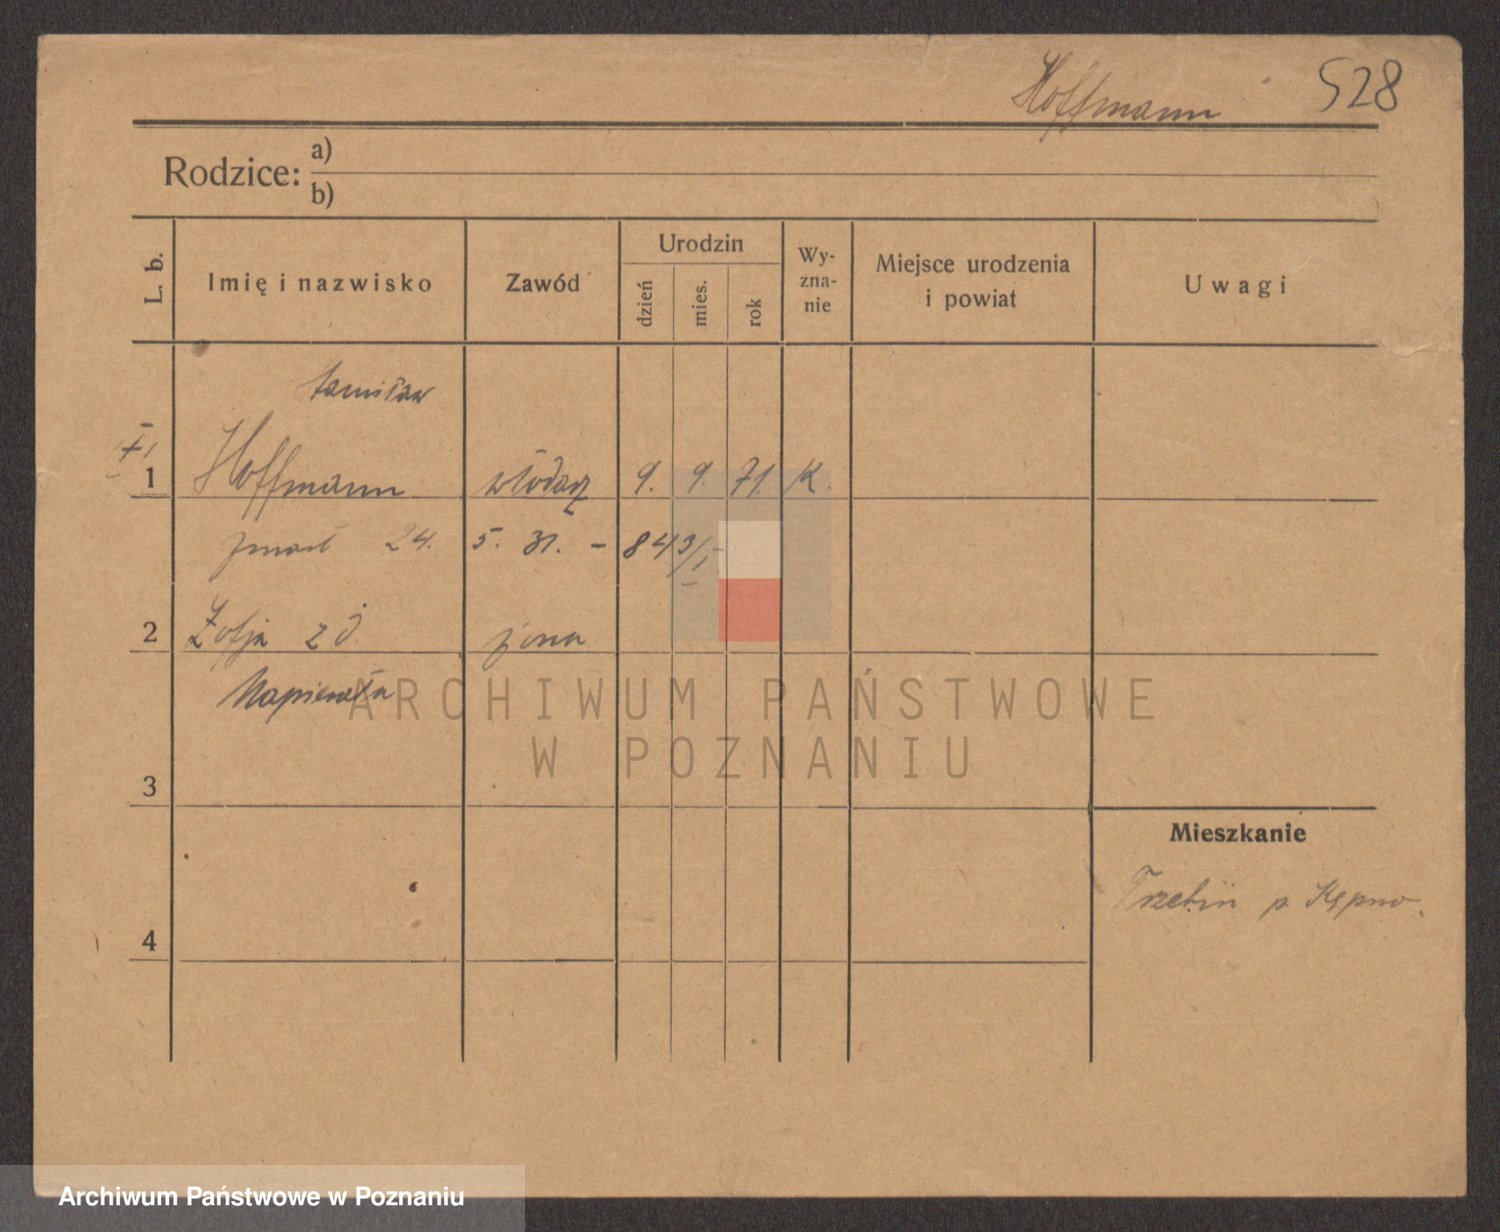 Hoffmann 528
Rodzice: a)
b)
L. b. Imię i nazwisko Zawód Urodzin dzień mies. rok Wy-zna-nie Miejsce urodzenia i powiat Uwagi
Stanisław
1 Hoffmann włódarz 9. 9. 71. K.
zmarł 24. 5. 31. - 843/I
2 Zofja z d. żona
Napierała
3
Mieszkanie
Trzebiń p. Kępno.
4
ARCHIWUM PAŃSTWOWE
W POZNANIU
Archiwum Państwowe w Poznaniu